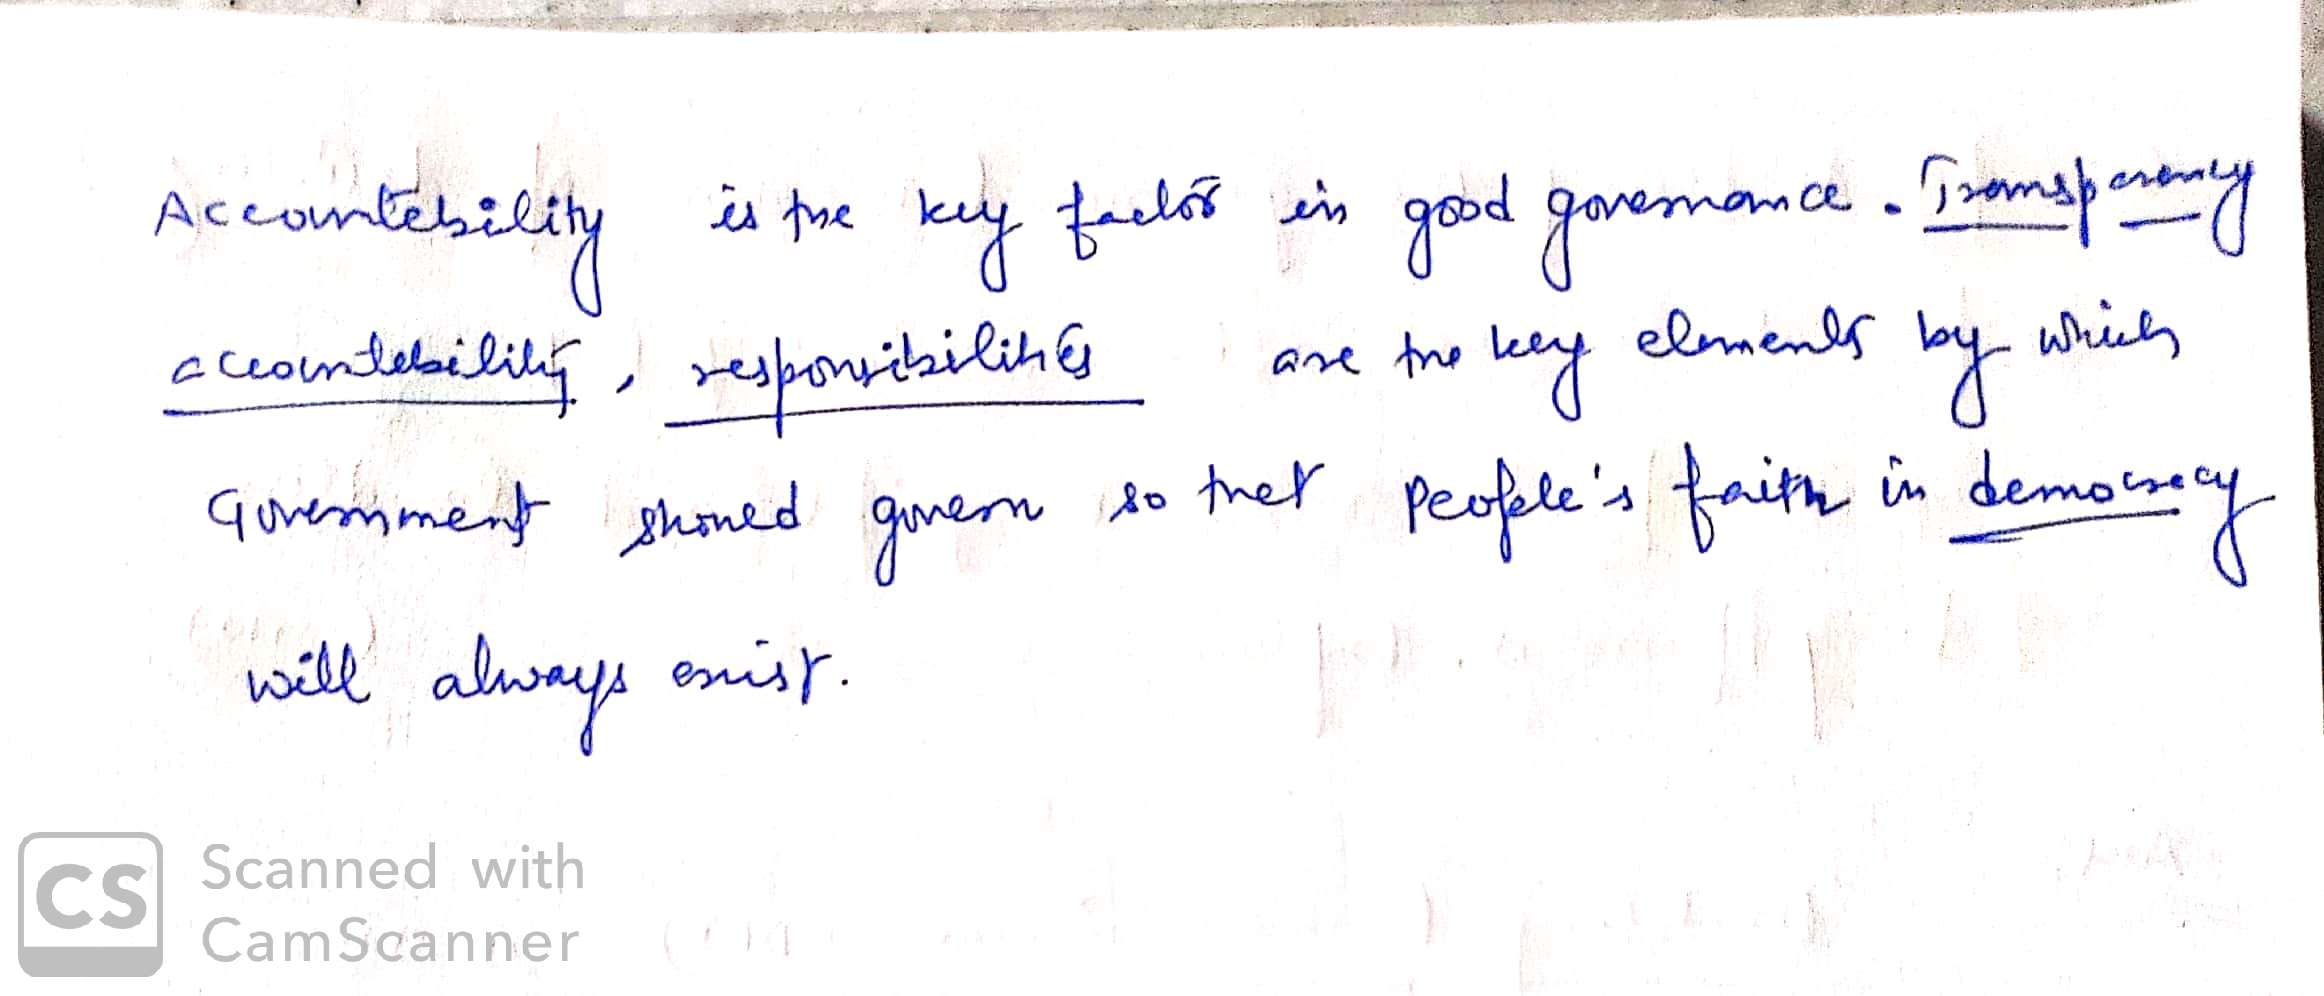 Accountability is the key factor in good governance. Transparency
accountability, responsibilities are the key elements by which
Government should govern so that people's faith in democracy
will always exist.
CS Scanned with
CamScanner